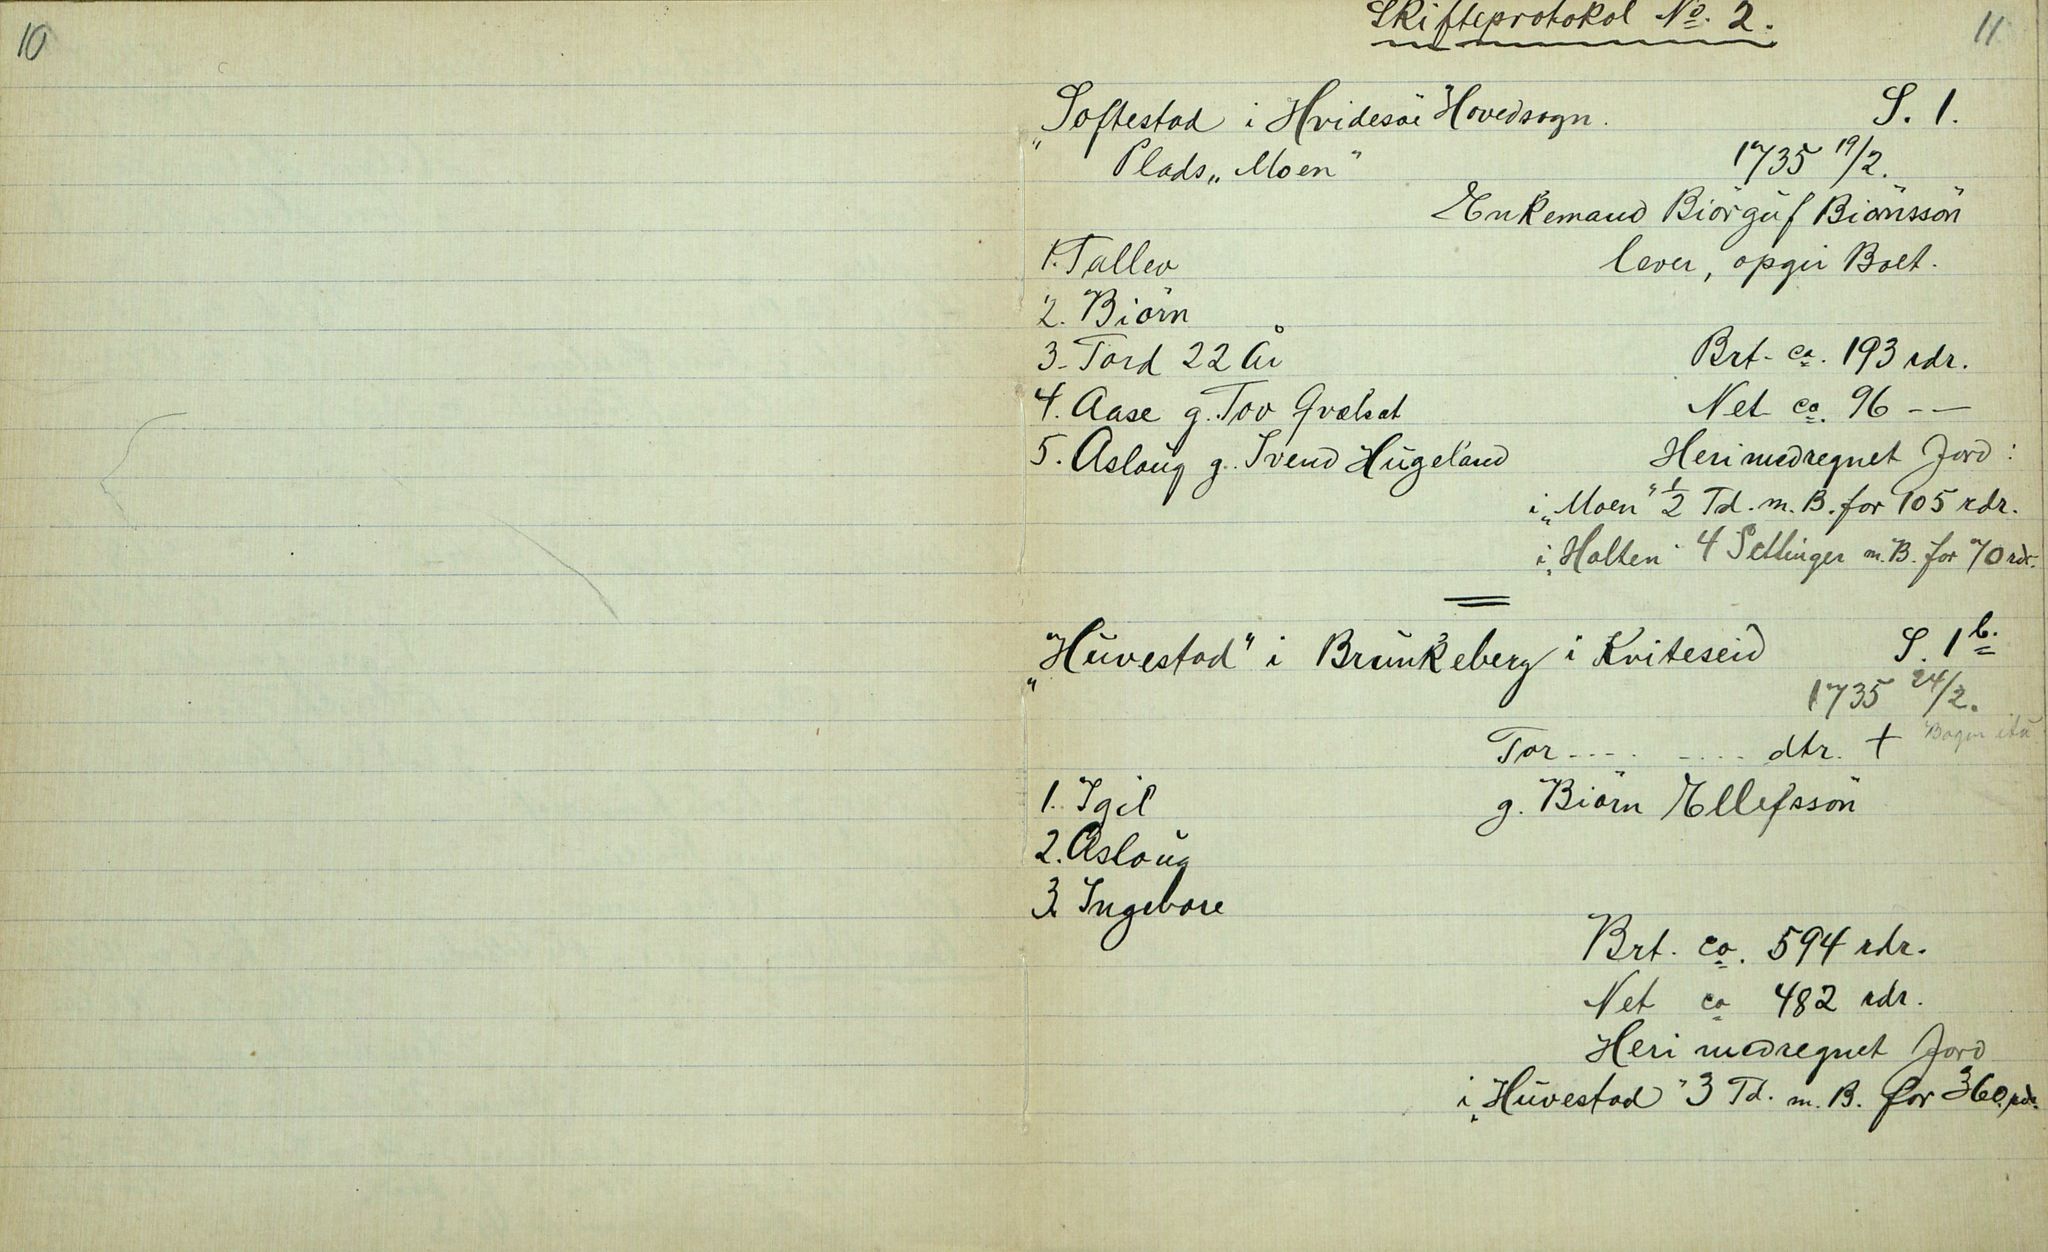 10
Skifteprotokol No. 2.
11
„Softestad i Hvidesöe Hovedsogn. S. 1.
Plads „Moen" 1735 19/2.
Enkemand Biörguf Biörnssön
1. Tallev lever, opgir Boet.
2. Biörn
3. Tord 22 År Brt. ca. 193 rdr.
4. Aase g. Tov Qvælsat Net ca. 96 – —
5. Aslaug g. Svend Hugeland Heri medregnet Jord:
i „Moen" 1/2 Td. m. B. for 105 rdr.
i „Holten" 4 Settinger m. B. for 70 rdr.
„Huvestad" i Brunkeberg i Kviteseid S. 1 b.
1735 24/2.
Tor - - - - - - - - dtr. †
1. Igil g. Biörn Ellefssön
2. Aslaug
3. Ingebore
Brt. ca. 594 rdr.
Net ca 482 rdr.
Heri medregnet Jord
i „Huvestad" 3 Td. m. B. for 360 rdr.